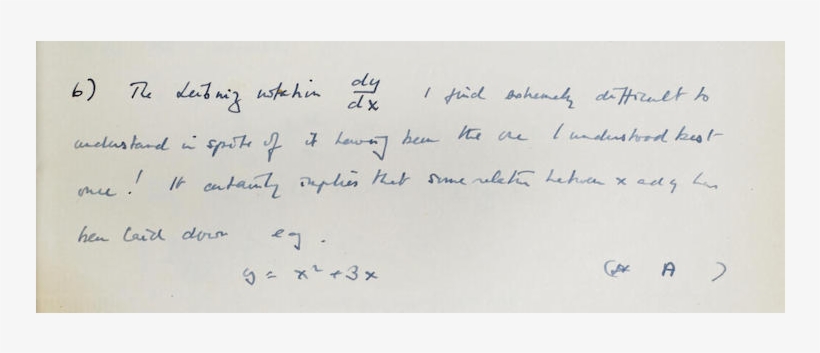 6) The Leibniz notation dy/dx I find extremely difficult to
understand in spite of it having been the one I understood best
once! It certainly implies that some relation between x and y has
been laid down eg.
y = x² + 3x ( A )